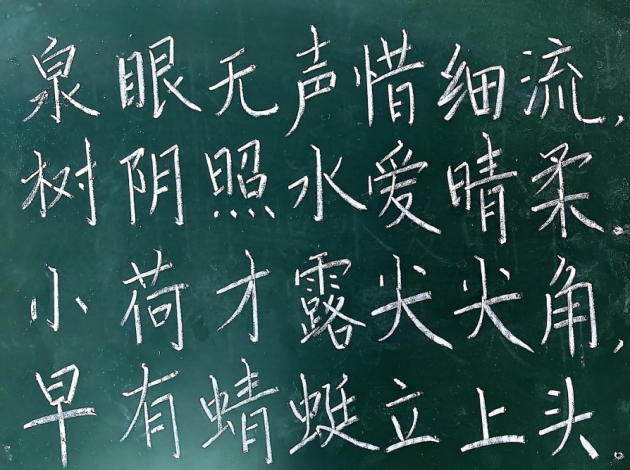 泉眼无声惜细流,
树阴照水爱晴柔。
小荷才露尖尖角,
早有蜻蜓立上头。